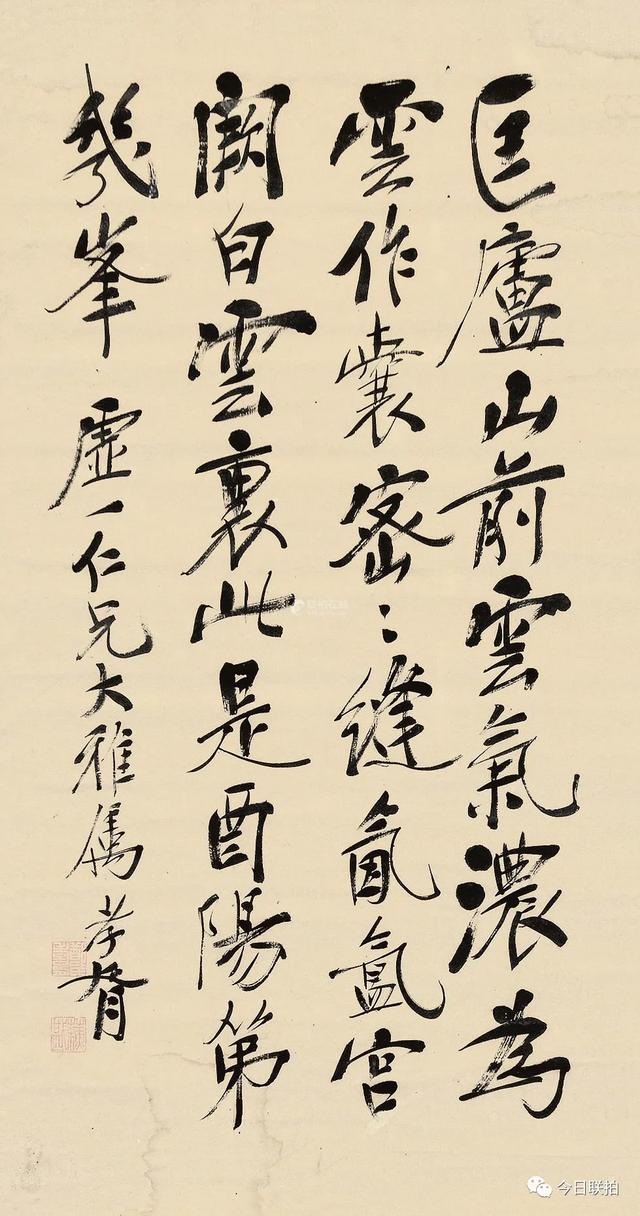 匡廬山前雲氣濃為
雲作囊密〻縫氤氳宮
闕白雲裏此是酉陽第
幾峯 虛一仁兄大雅屬 孝胥
今日联拍